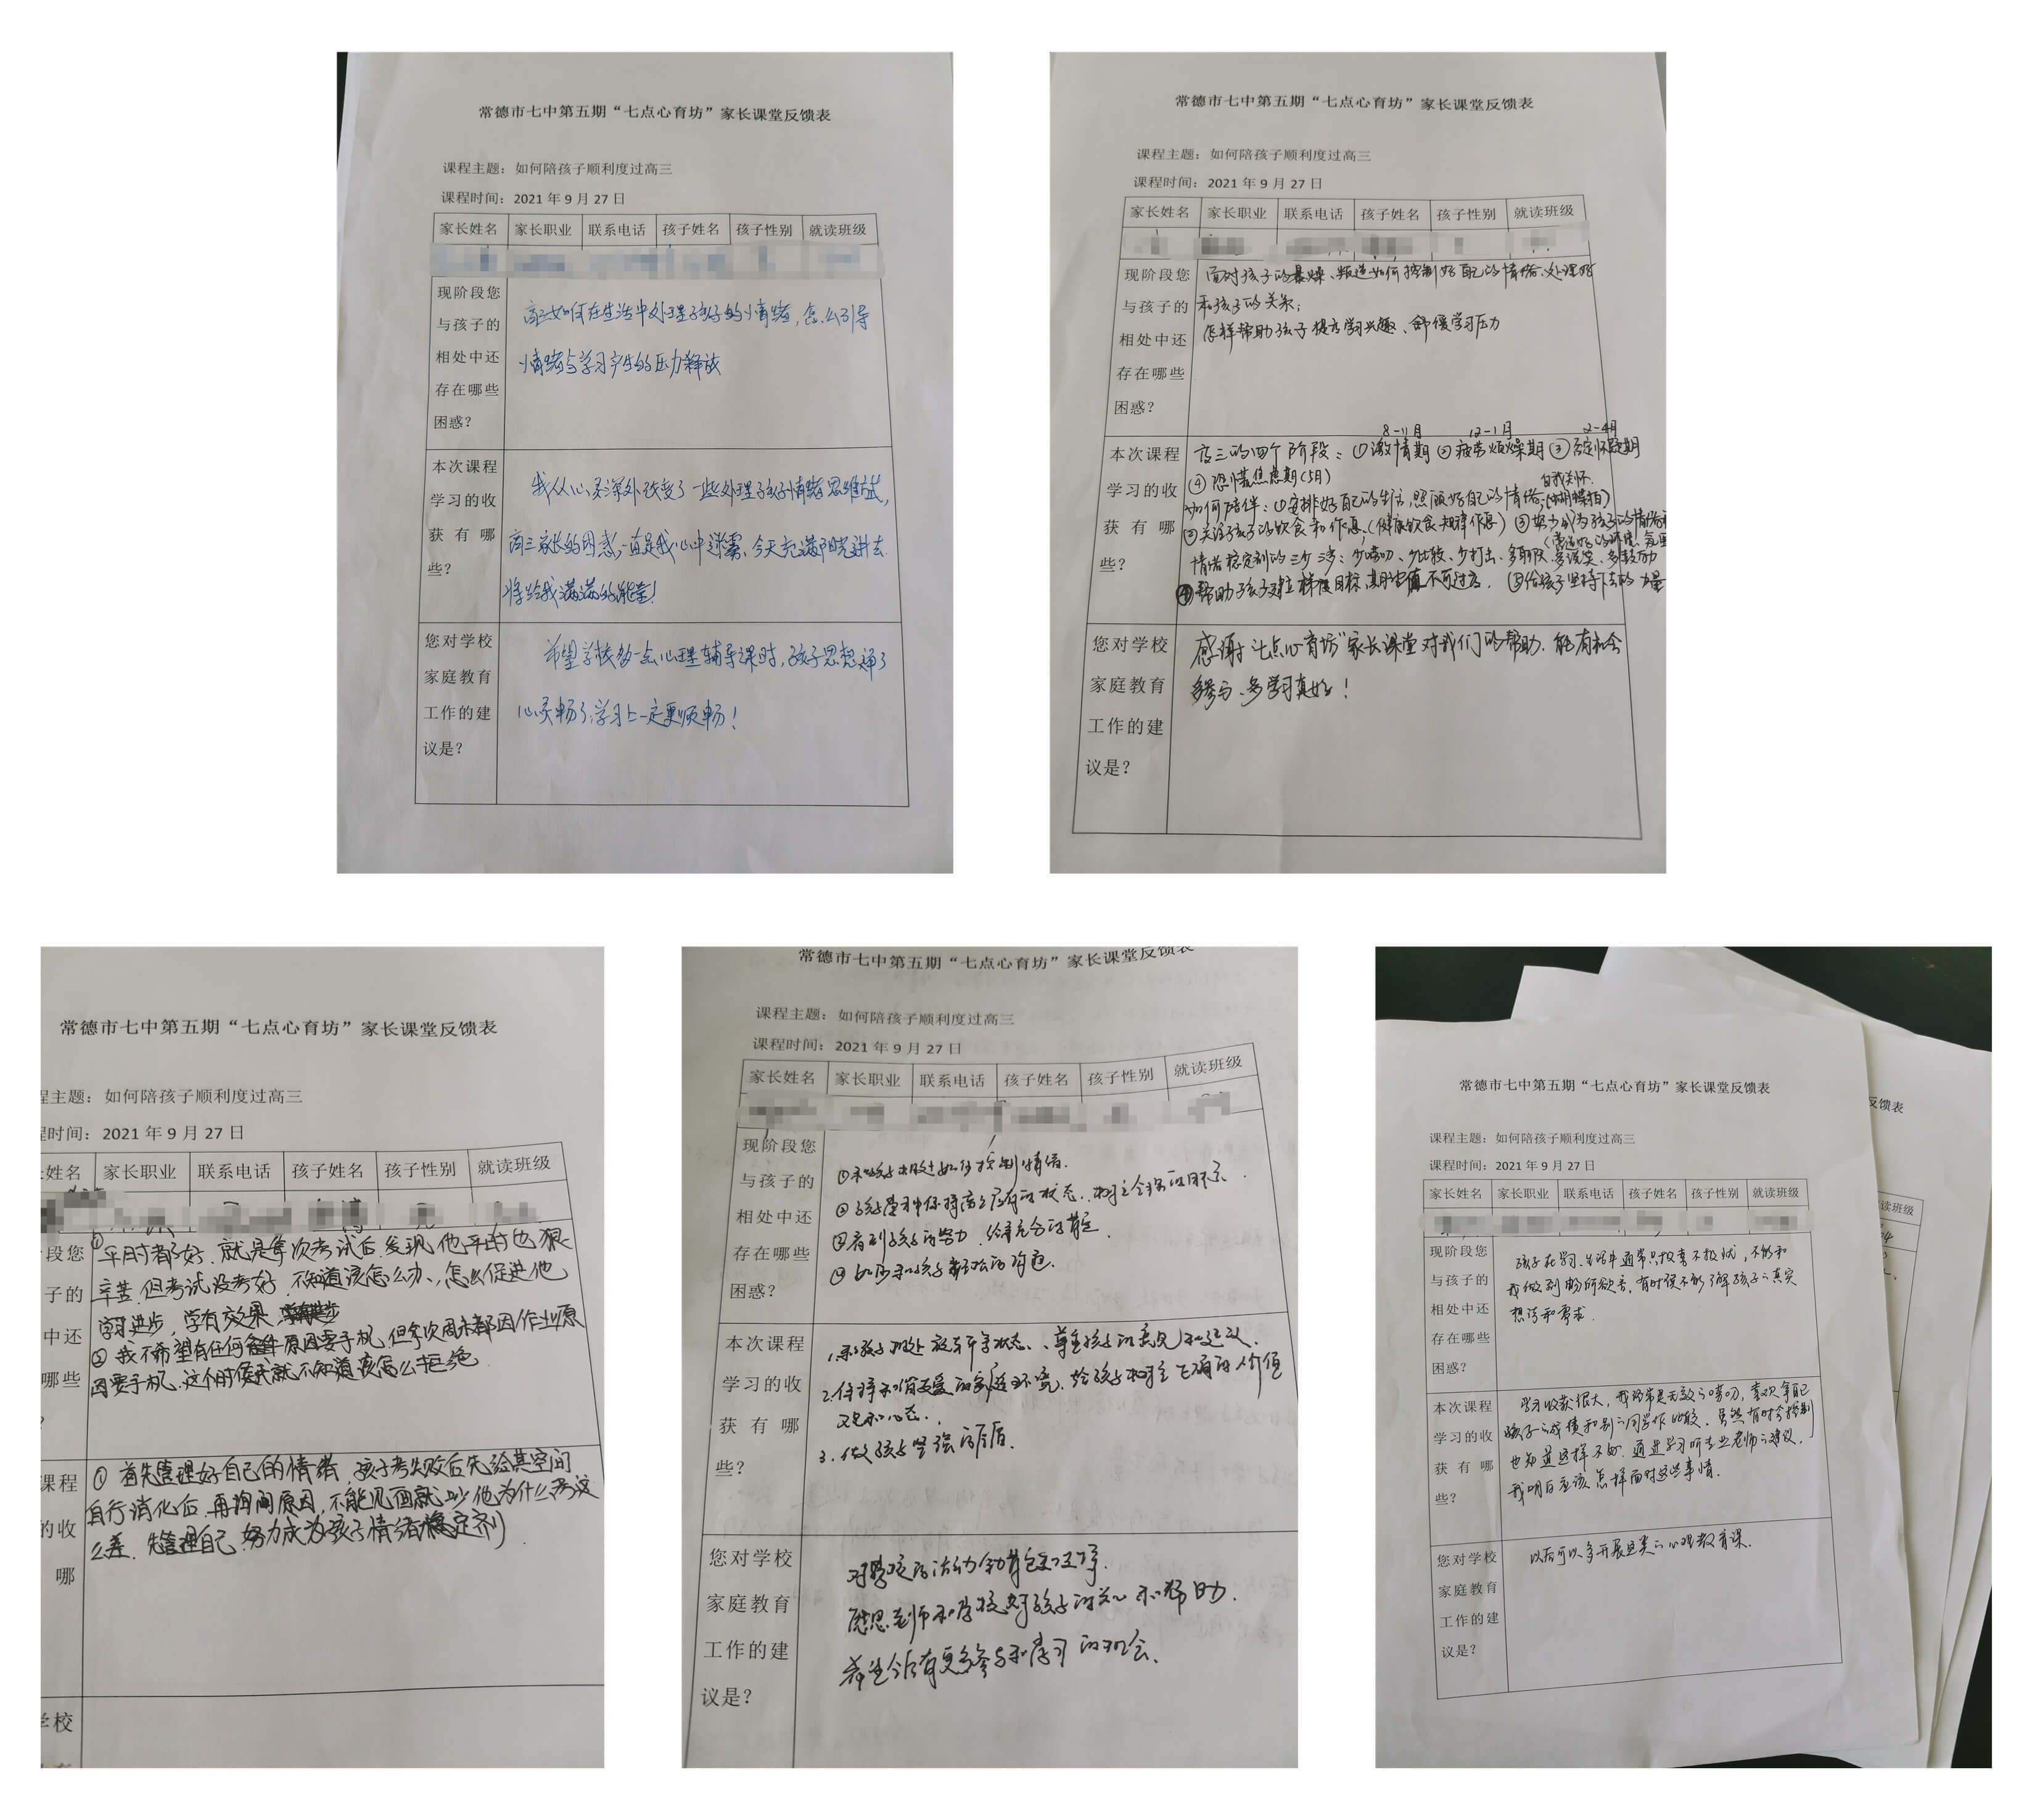 常德市七中第五期“七点心育坊”家长课堂反馈表
课程主题：如何陪孩子顺利度过高三
课程时间：2021年9月27日
家长姓名 家长职业 联系电话 孩子姓名 孩子性别 就读班级
现阶段您
与孩子的
相处中还
存在哪些
困惑？
高三如何在生活中处理孩子的情绪，怎么引导
情绪与学习产生的压力释放
本次课程
学习的收
获有哪
些？
我从心灵深处改变了一些处理孩子情绪思维方式，
高三家长的困惑，一直是我心中迷雾，今天充满阳光进去
将给我满满的能量！
您对学校
家庭教育
工作的建
议是？
希望学校多一点心理辅导课时，孩子思想通了
心灵畅了，学习上一定更顺畅！
常德市七中第五期“七点心育坊”家长课堂反馈表
课程主题：如何陪孩子顺利度过高三
课程时间：2021年9月27日
家长姓名 家长职业 联系电话 孩子姓名 孩子性别 就读班级
现阶段您
与孩子的
相处中还
存在哪些
困惑？
面对孩子的暴燥、叛逆如何控制好自己的情绪、处理好
和孩子的关系；
怎样帮助孩子提高学习兴趣、舒缓学习压力
本次课程
学习的收
获有哪
些？
8-11月 12-1月 2-4月
高三的四个阶段：①激情期②疲劳烦燥期③否定怀疑期
④恐慌焦虑期（5月）
自我关怀
如何陪伴：①安排好自己的生活，照顾好自己的情绪（蝴蝶拍）
②关注孩子的饮食和作息，（健康饮食规律作息）③努力成为孩子的情绪
情绪稳定剂的三少三多：少唠叨、少比较、少打击、多聊天、多说笑、多鼓励
④帮助孩子建立梯度目标，期望值不可过高．⑤给孩子坚持下去的力量
您对学校
家庭教育
工作的建
议是？
感谢“七点心育坊”家长课堂对我们的帮助．能有机会
多参与、多学习真好！
常德市七中第五期“七点心育坊”家长课堂反馈表
程主题：如何陪孩子顺利度过高三
程时间：2021年9月27日
姓名 家长职业 联系电话 孩子姓名 孩子性别 就读班级
段您
子的
中还
哪些
？
①平时都好．就是每次考试后．发现他平时也狠
辛苦．但考试没考好．不知道该怎么办、怎么促进他
学习进步，学有效果
②我不希望有任何原因要手机．但每次周末都因作业原
因要手机．这个时候我就不知道该怎么拒绝
课程
的收
哪
①首先管理好自己的情绪．孩子考失败后先给其空间
自行消化后．再询问原因．不能见面就吵他为什么考这
么差．先管理自己．努力成为孩子情绪稳定剂．
学校
常德市七中第五期“七点心育坊”家长课堂反馈表
课程主题：如何陪孩子顺利度过高三
课程时间：2021年9月27日
家长姓名 家长职业 联系电话 孩子姓名 孩子性别 就读班级
现阶段您
与孩子的
相处中还
存在哪些
困惑？
①和孩子相处如何控制情绪．
②孩子怎样保持高三应有的状态，树立合理的目标．
③看到孩子的努力，给予充分的肯定
④如何和孩子轻松的沟通．
本次课程
学习的收
获有哪
些？
1.和孩子相处放平等状态、尊重孩子的意见和建议．
2.保持和谐友爱的家庭环境．给孩子树立正确的价值
观和心态．
3.做孩子坚强的后盾．
您对学校
家庭教育
工作的建
议是？
对学校的活动全力支持．
感恩老师和学校对孩子的关心和帮助．
希望今后有更多参与和学习的机会．
常德市七中第五期“七点心育坊”家长课堂反馈表
课程主题：如何陪孩子顺利度过高三
课程时间：2021年9月27日
家长姓名 家长职业 联系电话 孩子姓名 孩子性别 就读班级
现阶段您
与孩子的
相处中还
存在哪些
困惑？
孩子在学习、生活中通常只报喜不报忧，不能和
我做到畅所欲言，有时候不能了解孩子之真实
想法和需求．
本次课程
学习的收
获有哪
些？
学习收获很大，我经常是无效之唠叨，喜欢拿自己
孩子之成绩和别之同学作比较．虽然有时会控制
也知道这样不好．通过学习听专业老师之建议，
我明白应该怎样面对这些事情．
您对学校
家庭教育
工作的建
议是？
以后可以多开展这类之心理教育课．
反馈表
读班级